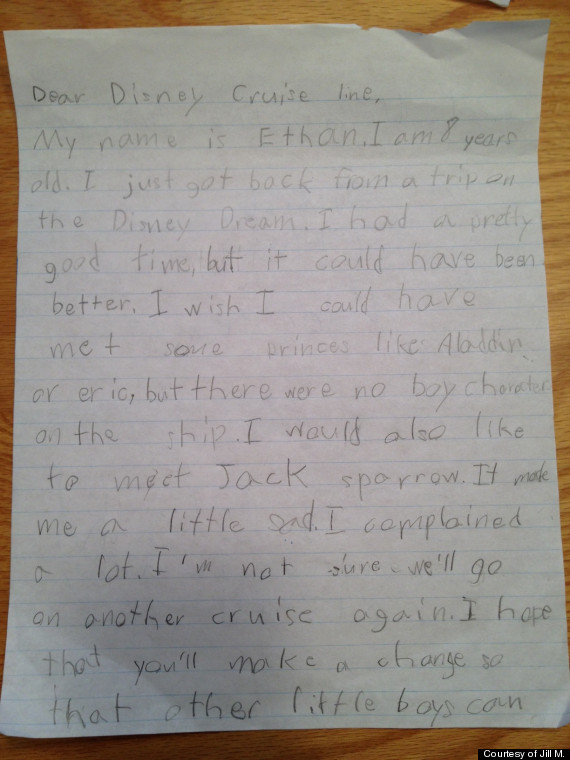 Dear Disney Cruise line,
My name is Ethan. I am 8 years
old. I just got back from a trip on
the Disney Dream. I had a pretty
good time, but it could have been
better. I wish I could have
met some princes like Aladdin
or eric, but there were no boy character
on the ship. I would also like
to meet Jack sparrow. It made
me a little sad. I complained
a lot. I'm not sure we'll go
on another cruise again. I hope
that you'll make a change so
that other little boys can
Courtesy of Jill M.